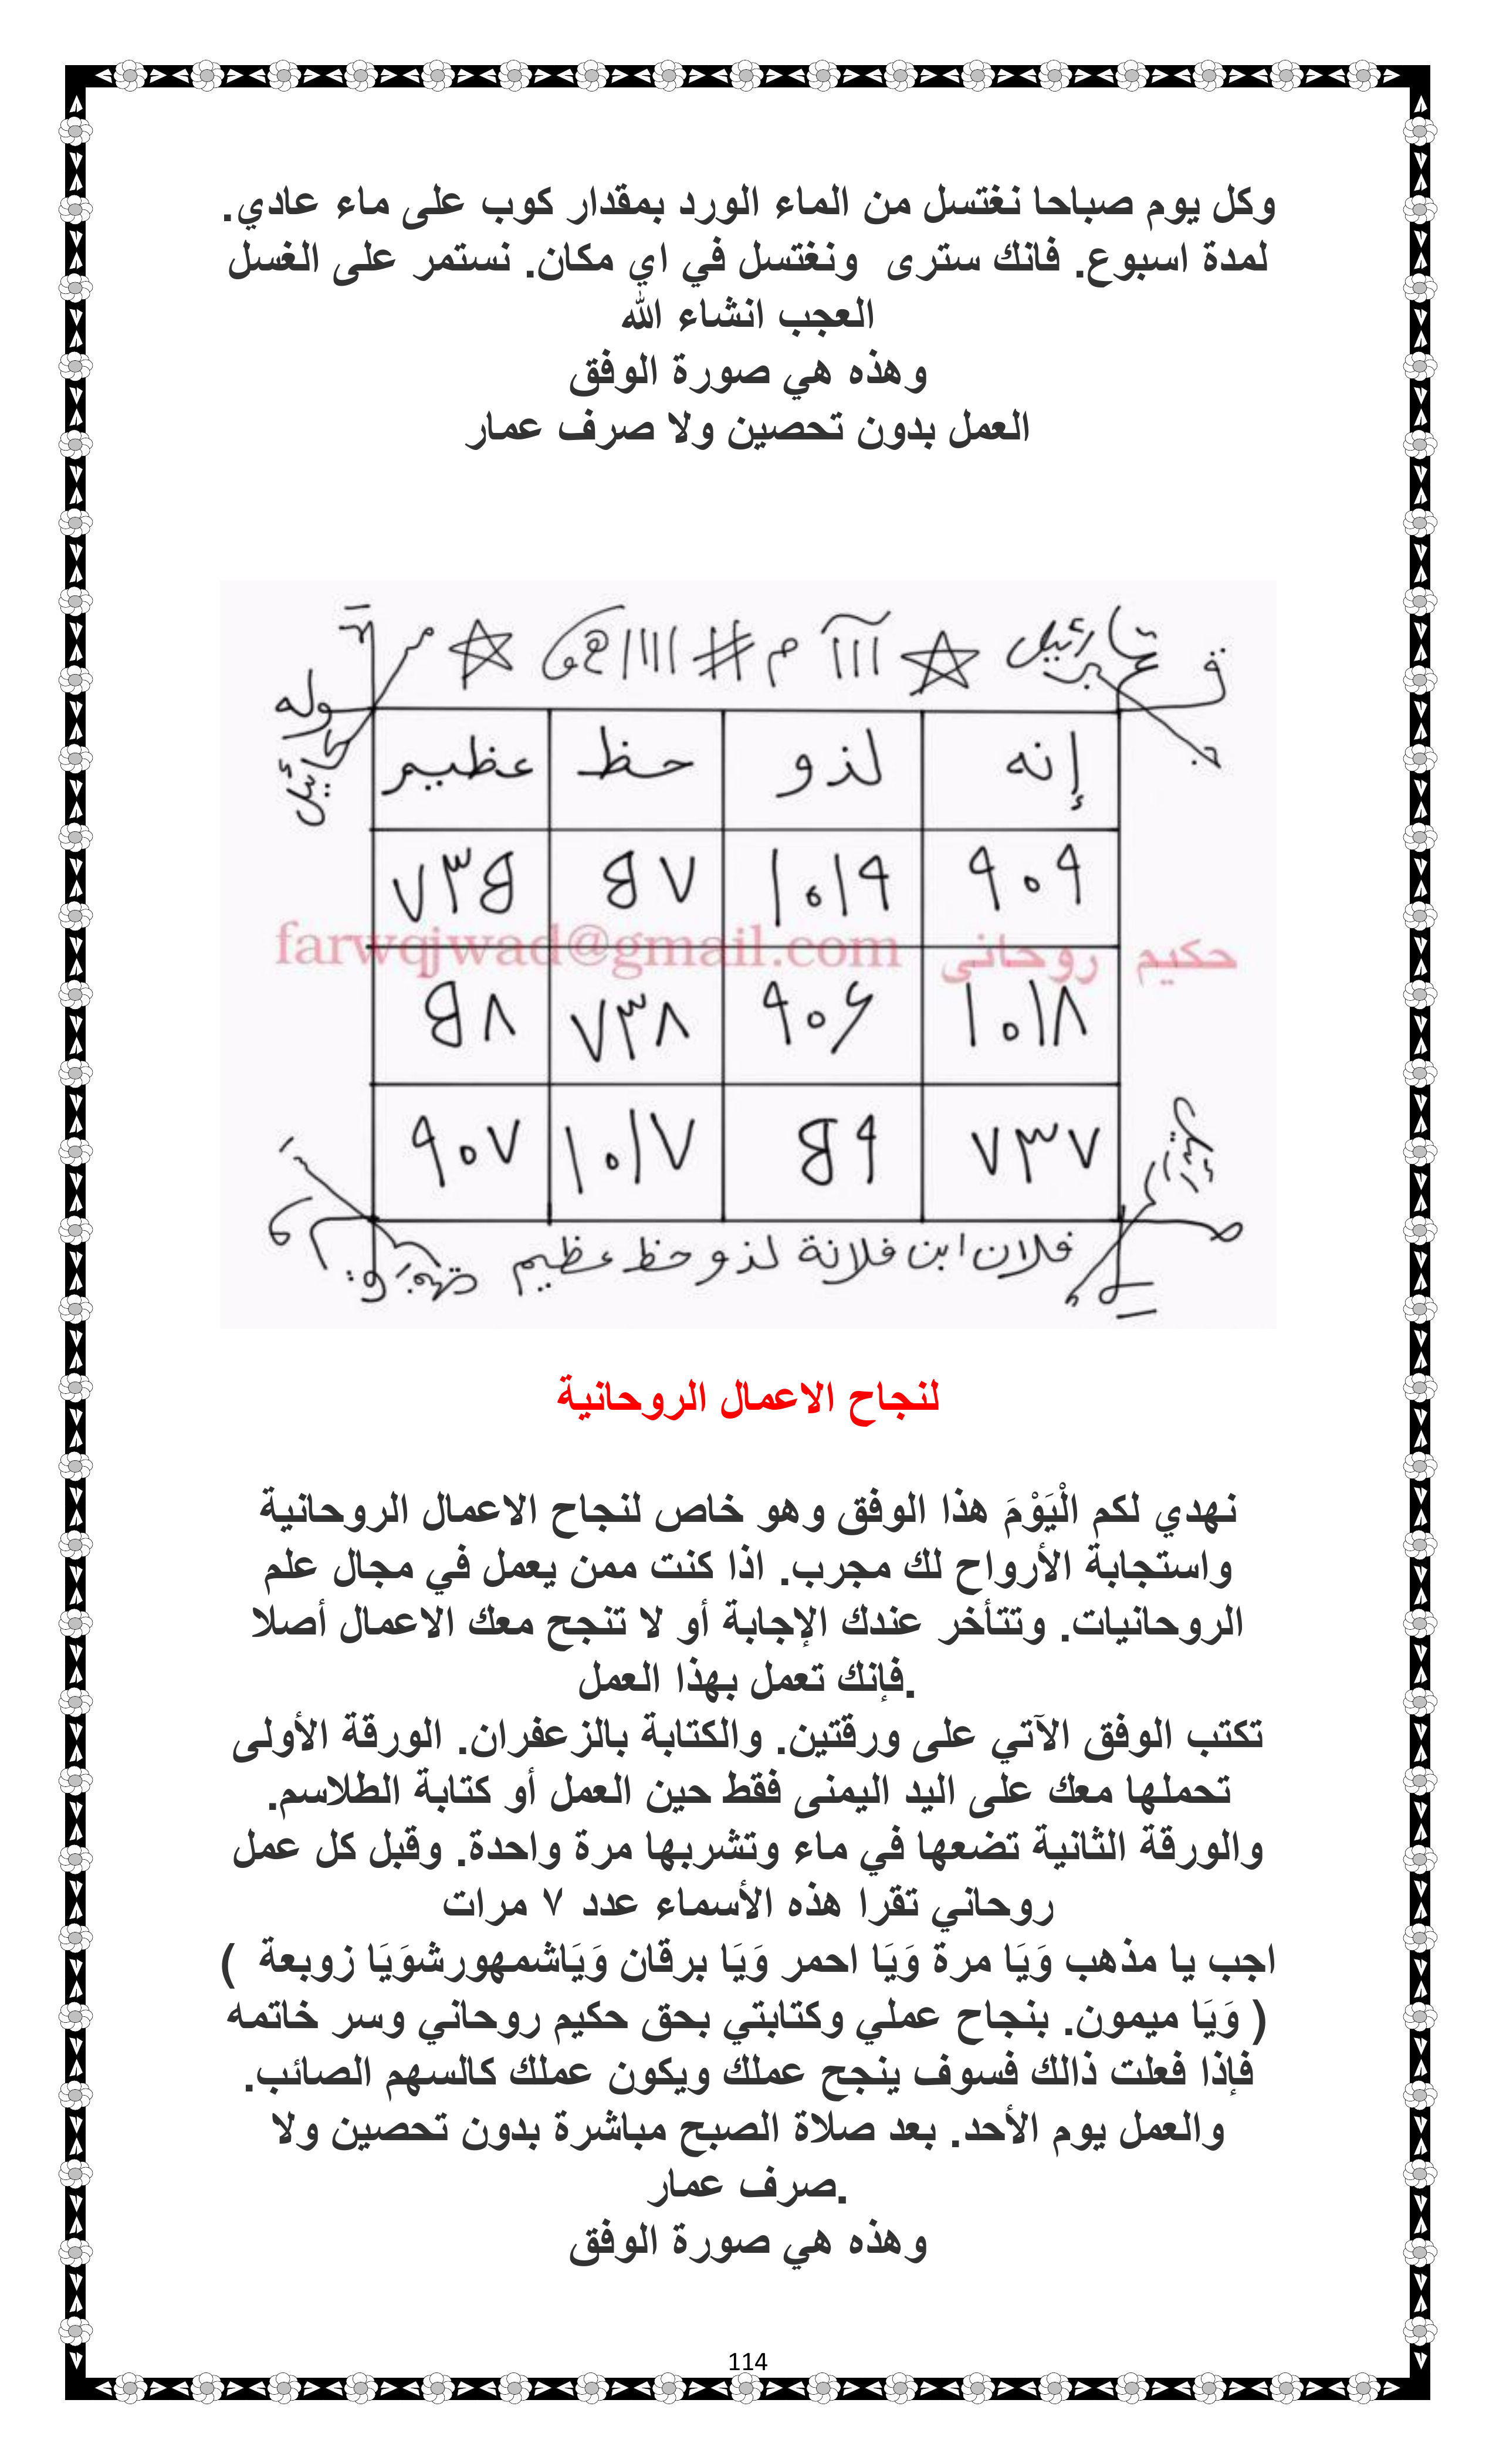 وكل يوم صباحا نغتسل من الماء الورد بمقدار كوب على ماء عادي.
لمدة اسبوع. فانك سترى ونغتسل في اي مكان. نستمر على الغسل
العجب انشاء الله
وهذه هي صورة الوفق
العمل بدون تحصين ولا صرف عمار
إنه لذو حظ عظيم
٩٠٩ ١٠١٩ ٨٧ ٧٣٨
farwqjwad@gmail.com حكيم روحاني
١٠١٨ ٩٠٦ ٧٣٨
٧٣٧ ١٠١٧ ٩٠٧
فلان ابن فلانة لذو حظ عظيم
لنجاح الاعمال الروحانية
نهدي لكم الْيَوْمَ هذا الوفق وهو خاص لنجاح الاعمال الروحانية
واستجابة الأرواح لك مجرب. اذا كنت ممن يعمل في مجال علم
الروحانيات. وتتأخر عندك الإجابة أو لا تنجح معك الاعمال أصلا
.فإنك تعمل بهذا العمل
تكتب الوفق الآتي على ورقتين. والكتابة بالزعفران. الورقة الأولى
تحملها معك على اليد اليمنى فقط حين العمل أو كتابة الطلاسم.
والورقة الثانية تضعها في ماء وتشربها مرة واحدة. وقبل كل عمل
روحاني تقرا هذه الأسماء عدد ٧ مرات
اجب يا مذهب وَيَا مرة وَيَا احمر وَيَا برقان وَيَاشمهورشوَيَا زوبعة )
( وَيَا ميمون. بنجاح عملي وكتابتي بحق حكيم روحاني وسر خاتمه
فإذا فعلت ذالك فسوف ينجح عملك ويكون عملك كالسهم الصائب.
والعمل يوم الأحد. بعد صلاة الصبح مباشرة بدون تحصين ولا
.صرف عمار
وهذه هي صورة الوفق
114